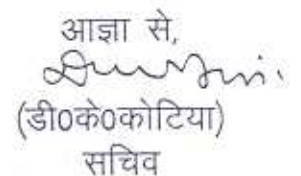 आज्ञा से,
(डी0के0कोटिया)
सचिव